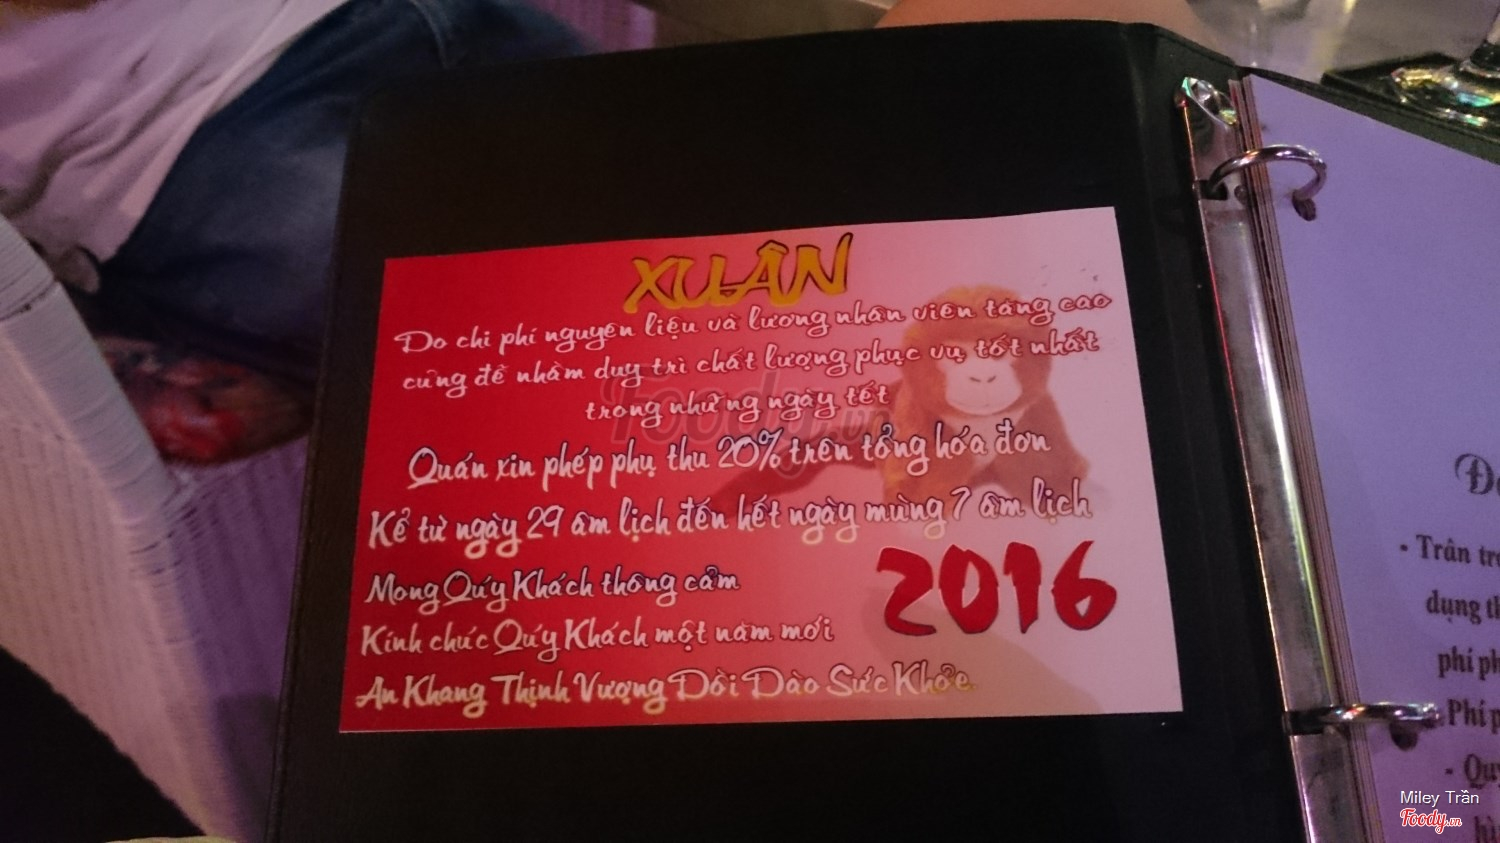 XUÂN
Do chi phí nguyên liệu và lương nhân viên tăng cao
cũng để nhằm duy trì chất lượng phục vụ tốt nhất
trong những ngày tết
Quán xin phép phụ thu 20% trên tổng hóa đơn
Kể từ ngày 29 âm lịch đến hết ngày mùng 7 âm lịch
Mong Quý Khách thông cảm
Kính chúc Quý Khách một năm mới
An Khang Thịnh Vượng Dồi Dào Sức Khỏe.
2016
Foody.vn
• Trân
dụng
phí
- Phí
Miley Trần
Foody.vn